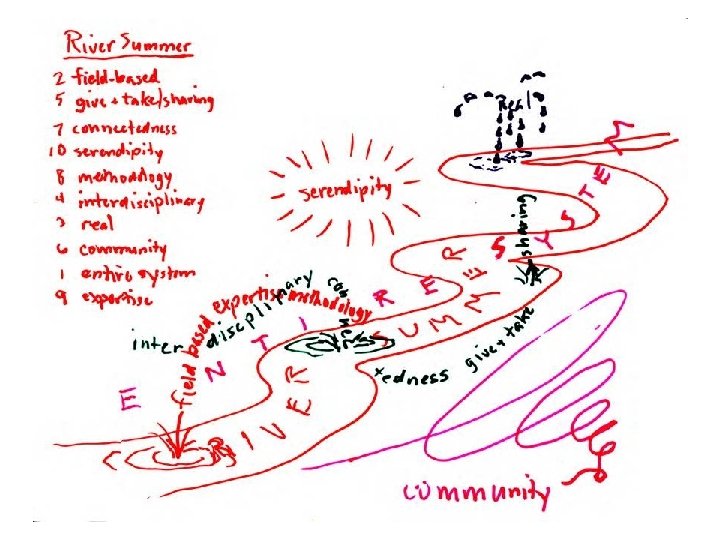 River Summer
2 field-based
5 give + take/sharing
7 connectedness
10 serendipity
8 methodology
4 interdisciplinary
3 real
6 community
1 entire system
9 expertise
Real
serendipity
sharing
ENTIRE SYSTEM
RIVER SUMMER
interdisciplinary
field based expertise methodology
connectedness
give + take
community